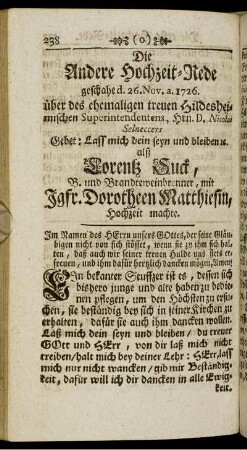 238 (o)
Die
Andere Hochzeit-Rede
geschahe d. 26. Nov. a. 1726.
über des ehemaligen treuen Hildeshei-
mischen Superintendentens, Hrn. D. Nicolai
Selneccers
Gebet: Lass mich dein seyn und bleiben ꝛc.
alß
Lorentz Suck,
B. und Brandteweinbrenner, mit
Jgfr. Dorotheen Matthiesin,
Hochzeit machte.
Im Namen des HErrn unsers GOttes, der seine Gläu-
bigen nicht von sich stösset, wenn sie zu ihm sich hal-
ten, daß auch wir seiner treuen Hulde uns stets er-
freuen, und ihm dafür hertzlich dancken mögen, Amen!
Ein bekanter Seuffzer ist es, dessen sich
bishero junge und alte haben zu bedie-
nen pflegen, um den Höchsten zu ersu-
chen, sie beständig bey sich in seiner Kirchen zu
erhalten, dafür sie auch ihm dancken wollen.
Laß mich dein seyn und bleiben / du treuer
GOtt und HErr, von dir laß mich nicht
treiben / halt mich bey deiner Lehr: HErr, lass
mich nur nicht wancken / gib mir Beständig-
keit, dafür will ich dir dancken in alle Ewig-
keit.